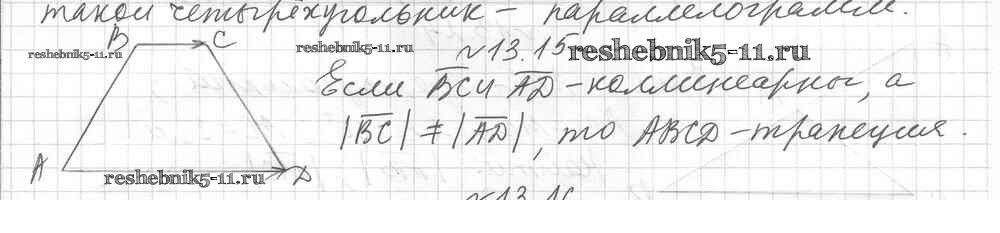 такой четырёхугольник – параллелограмм.
B C reshebnik5-11.ru №13.15 reshebnik5-11.ru
reshebnik5-11.ru
Если BC и AD – коллинеарны, а
|BC| ≠ |AD|, то ABCD – трапеция.
A reshebnik5-11.ru D
№13.16